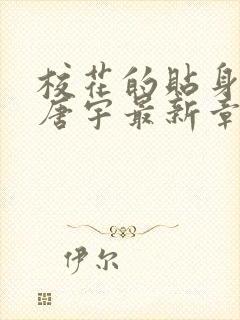 校花的贴身
唐宇最新章
伊尔